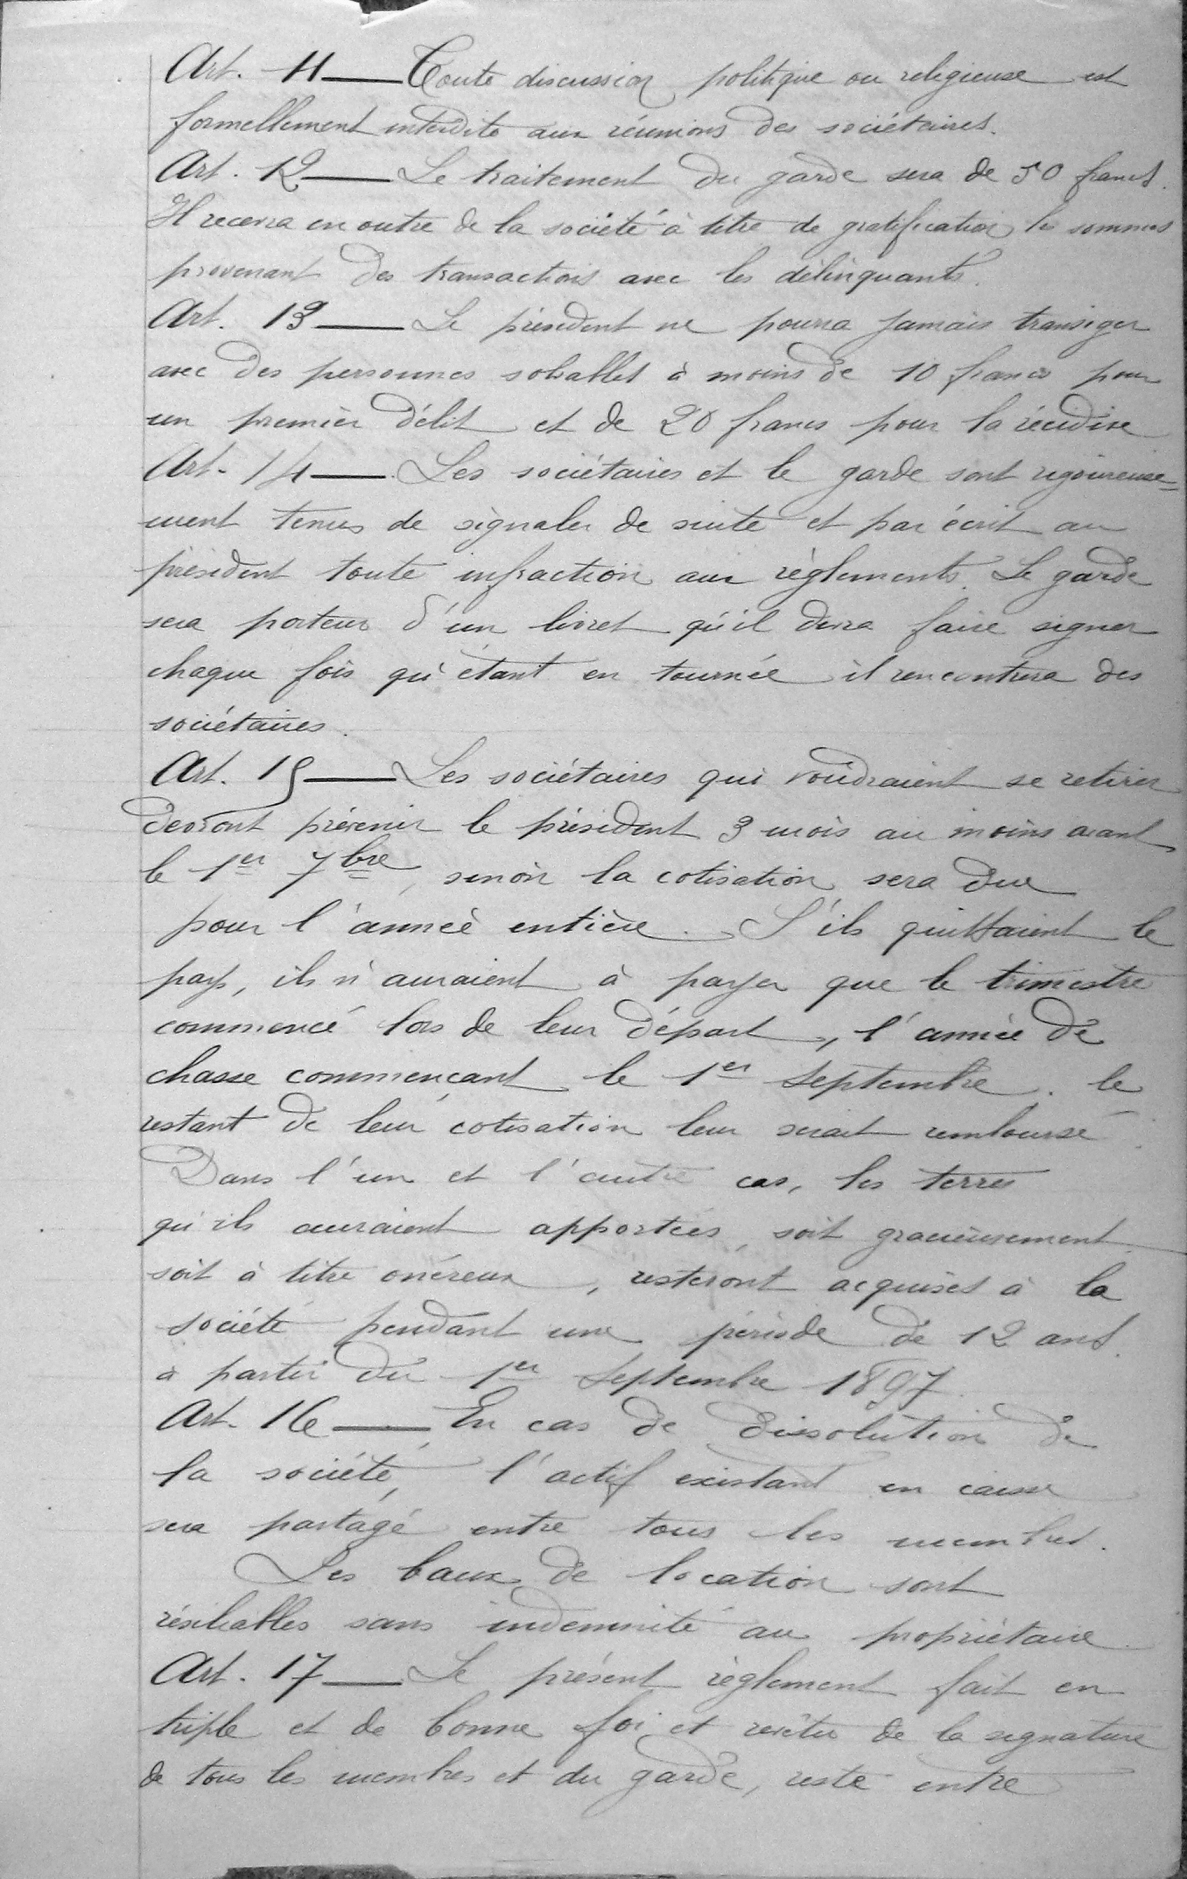 Art. 11 — Toute discussion politique ou religieuse est
formellement interdite aux réunions des sociétaires.
Art. 12 — Le traitement du garde sera de 50 francs.
Il recevra en outre de la société à titre de gratification les sommes
provenant des transactions avec les délinquants.
Art. 13 — Le président ne pourra jamais transiger
avec des personnes solvables à moins de 10 francs pour
un premier délit et de 20 francs pour la récidive
Art. 14 — Les sociétaires et le garde sont rigoureuse=
ment tenus de signaler de suite et par écrit au
président toute infraction aux règlements. Le garde
sera porteur d'un livret qu'il devra faire signer
chaque fois qu'étant en tournée il rencontrera des
sociétaires.
Art. 15 — Les sociétaires qui voudraient se retirer
devront prévenir le président 3 mois au moins avant
le 1er 7bre, sinon la cotisation sera due
pour l'année entière. S'ils quittaient le
pays, ils n'auraient à payer que le trimestre
commencé lors de leur départ, l'année de
chasse commençant le 1er Septembre. le
restant de leur cotisation leur serait remboursé.
Dans l'un et l'autre cas, les terres
qu'ils auraient apportées, soit gracieusement
soit à titre onéreux, resteront acquises à la
société pendant une période de 12 ans.
à partir du 1er Septembre 1897.
Art. 16 — En cas de dissolution de
la société, l'actif existant en caisse
sera partagé entre tous les membres.
Les baux de location sont
résiliables sans indemnité au propriétaire.
Art. 17 — Le présent règlement fait en
triple et de bonne foi et revêtu de la signature
de tous les membres et du garde, reste entre